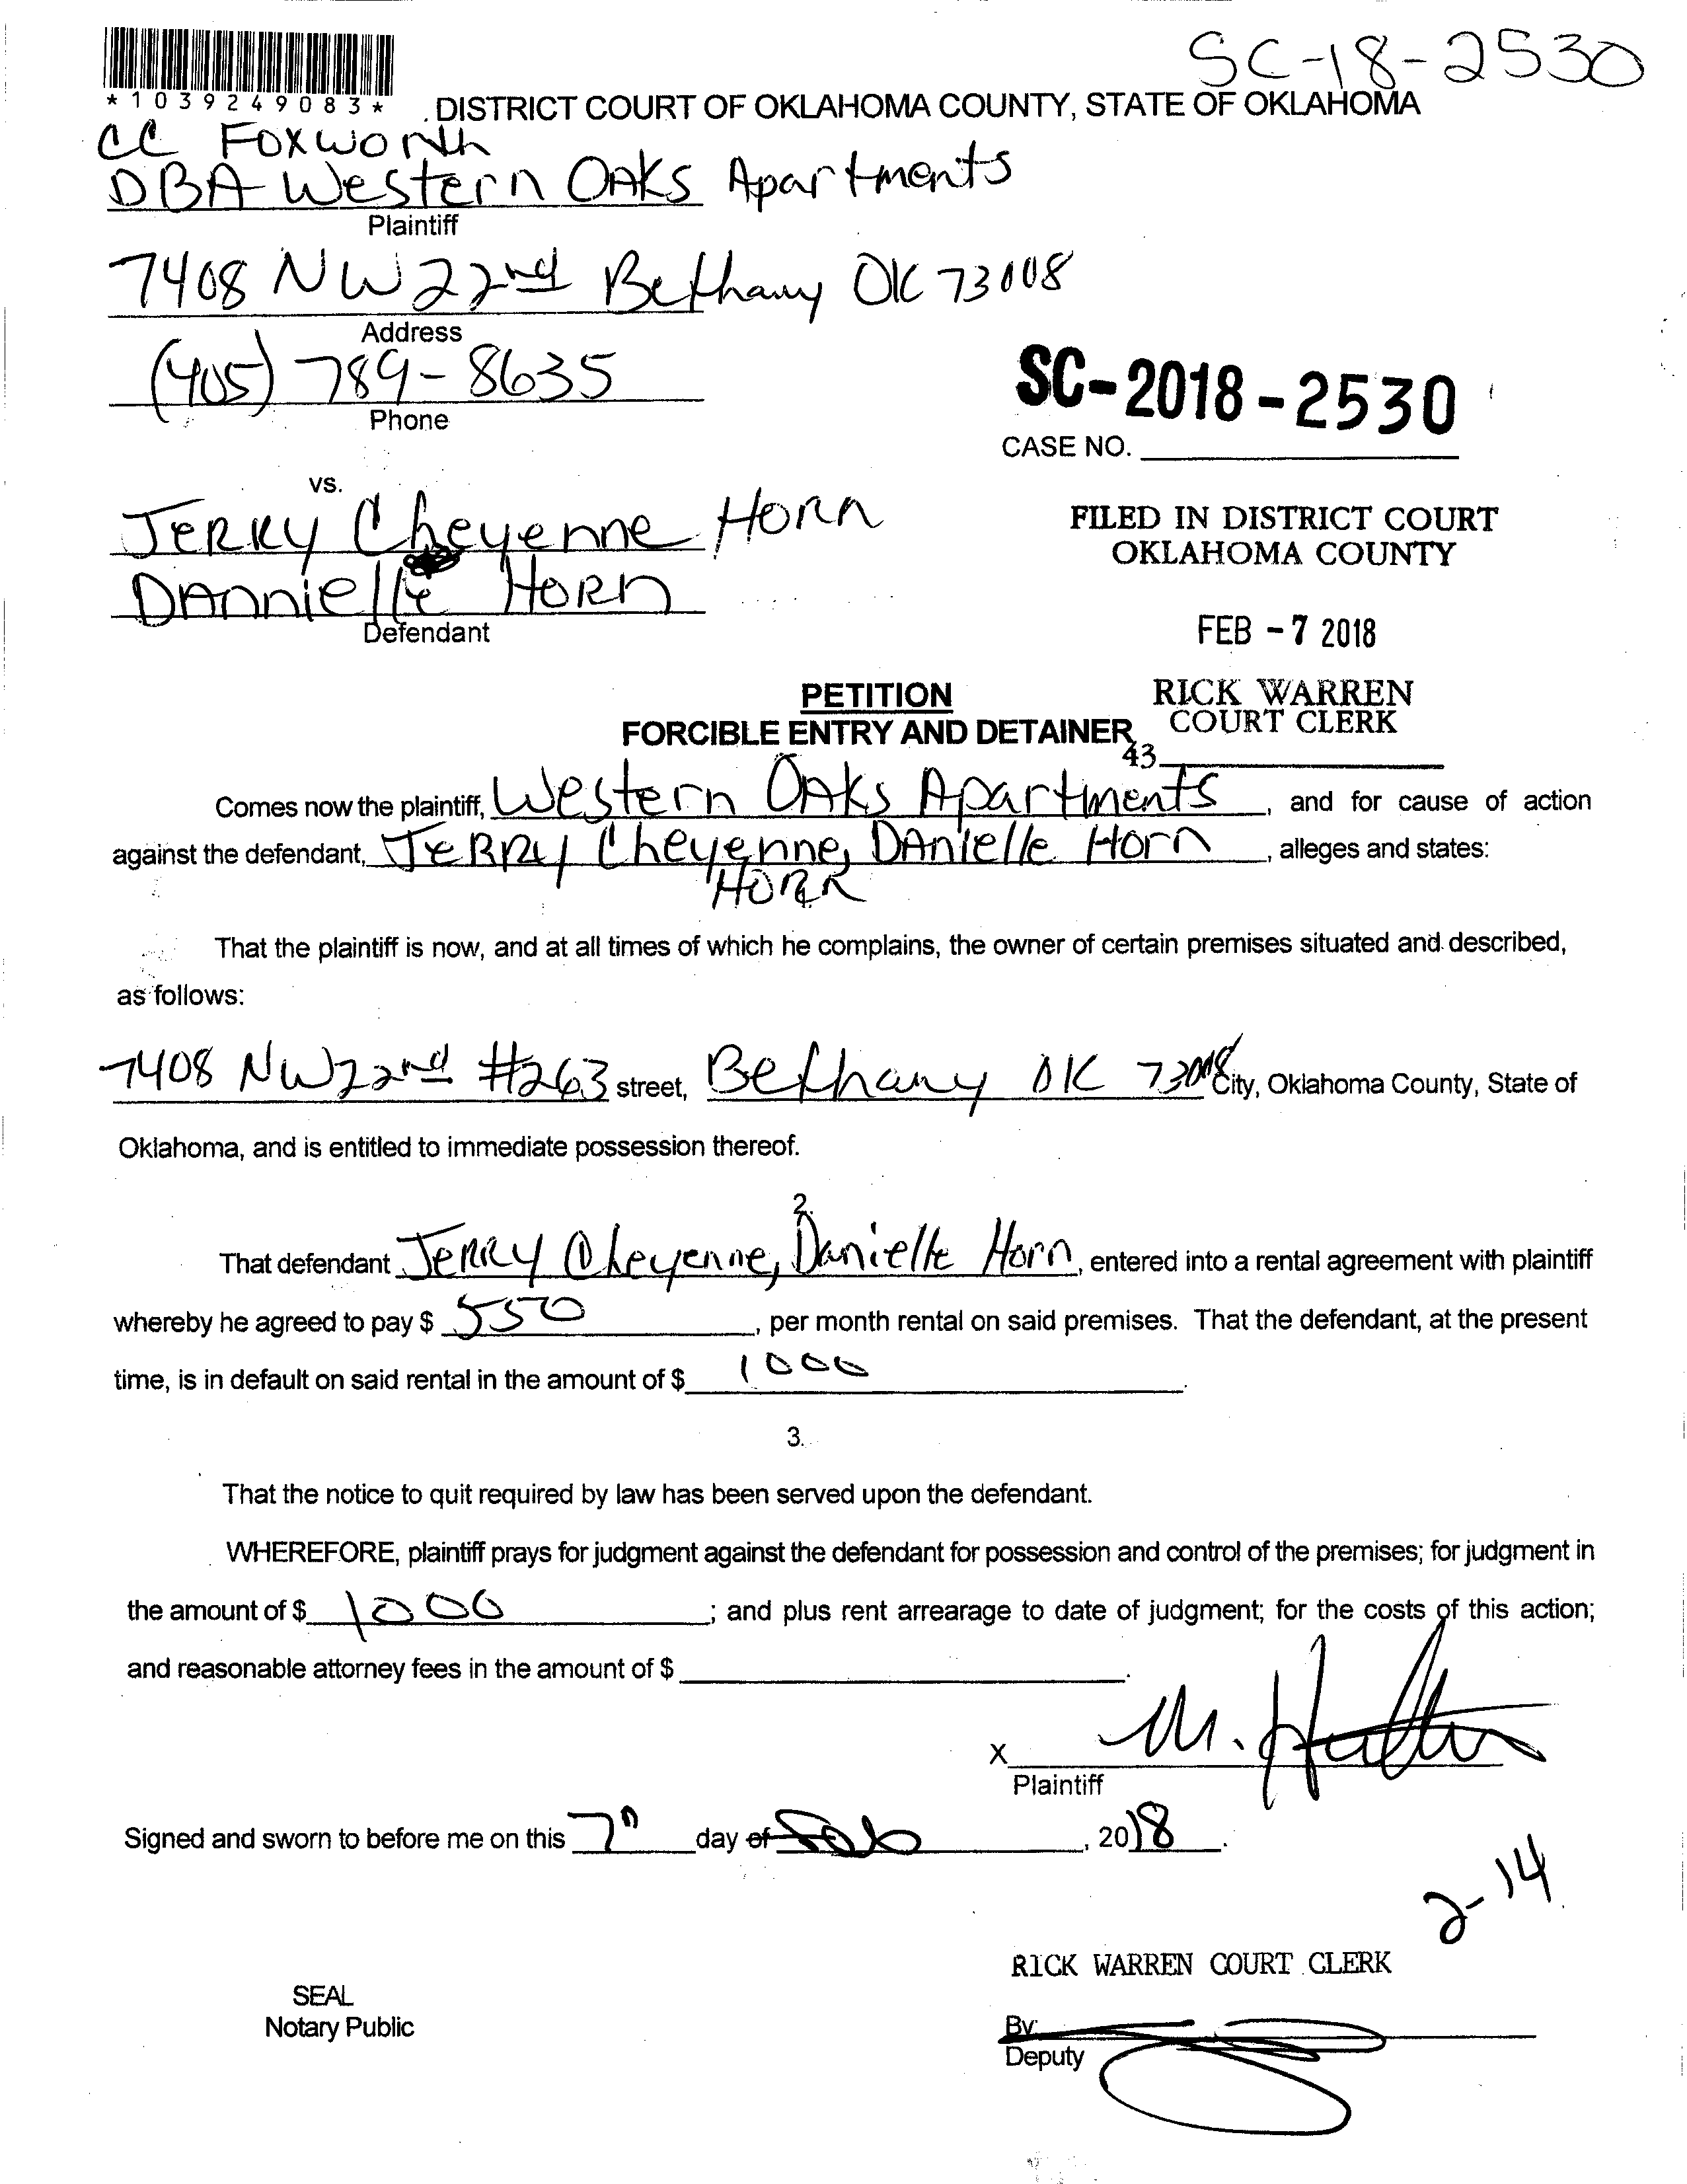 SC-18-2530
*1039249083*
DISTRICT COURT OF OKLAHOMA COUNTY, STATE OF OKLAHOMA
CC Foxworth
DBA Western Oaks Apartments
Plaintiff
7408 NW 22nd Bethany OK 73008
Address
(405) 789-8635
Phone
SC-2018-2530
CASE NO.
vs.
Jerry Cheyenne Horn
Dannielle Horn
Defendant
FILED IN DISTRICT COURT
OKLAHOMA COUNTY
FEB -7 2018
RICK WARREN
COURT CLERK
43
PETITION
FORCIBLE ENTRY AND DETAINER
Comes now the plaintiff, Western Oaks Apartments, and for cause of action
against the defendant, Jerry Cheyenne, Danielle Horn, alleges and states:
Horn
That the plaintiff is now, and at all times of which he complains, the owner of certain premises situated and described,
as follows:
7408 NW 22nd #263 street, Bethany OK 73008 City, Oklahoma County, State of
Oklahoma, and is entitled to immediate possession thereof.
2.
That defendant Jerry Cheyenne, Danielle Horn, entered into a rental agreement with plaintiff
whereby he agreed to pay $ 550, per month rental on said premises. That the defendant, at the present
time, is in default on said rental in the amount of $ 1000.
3.
That the notice to quit required by law has been served upon the defendant.
WHEREFORE, plaintiff prays for judgment against the defendant for possession and control of the premises; for judgment in
the amount of $ 1000; and plus rent arrearage to date of judgment; for the costs of this action;
and reasonable attorney fees in the amount of $
X M.
Plaintiff
Signed and sworn to before me on this 7th day of Feb, 2018.
2-14
RICK WARREN COURT CLERK
SEAL
Notary Public
By:
Deputy